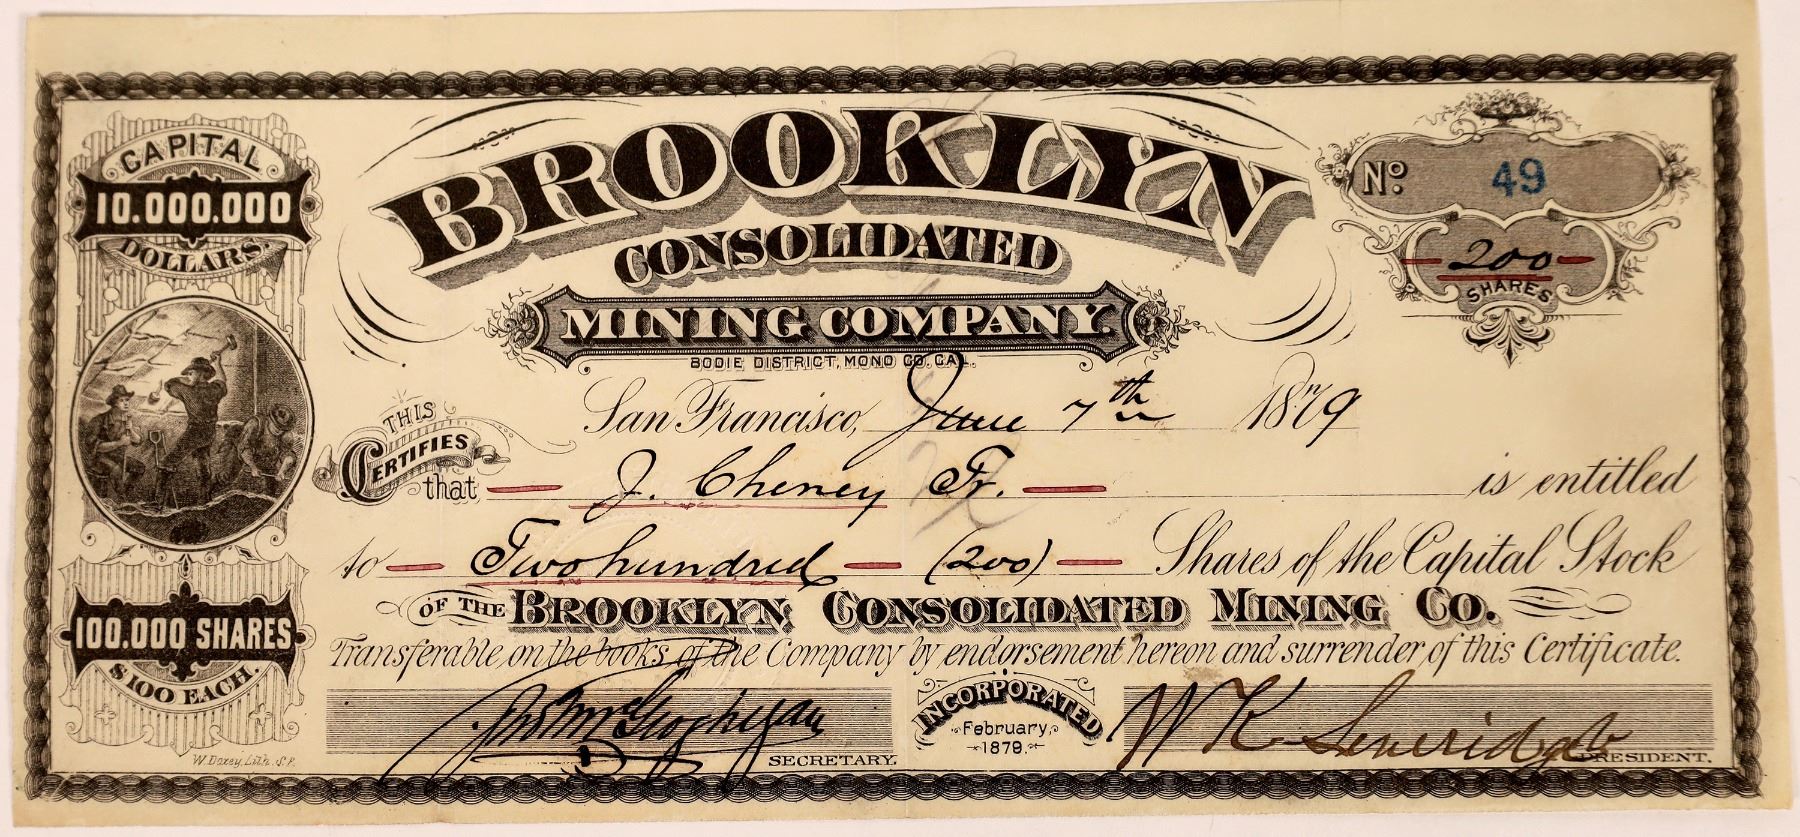 CAPITAL
10.000.000
DOLLARS.
BROOKLYN
CONSOLIDATED
MINING COMPANY.
BODIE DISTRICT, MONO CO. CAL.
No. 49
200
SHARES
San Francisco, June 7th 1879
THIS
CERTIFIES
that J. Cheney Tr. is entitled
to Two hundred (200) Shares of the Capital Stock
OF THE BROOKLYN CONSOLIDATED MINING CO.
Transferable on the books of the Company by endorsement hereon and surrender of this Certificate.
100.000 SHARES
$100 EACH.
INCORPORATED
February,
1879.
SECRETARY.
PRESIDENT.
W. Doxey, Lith. S.F.